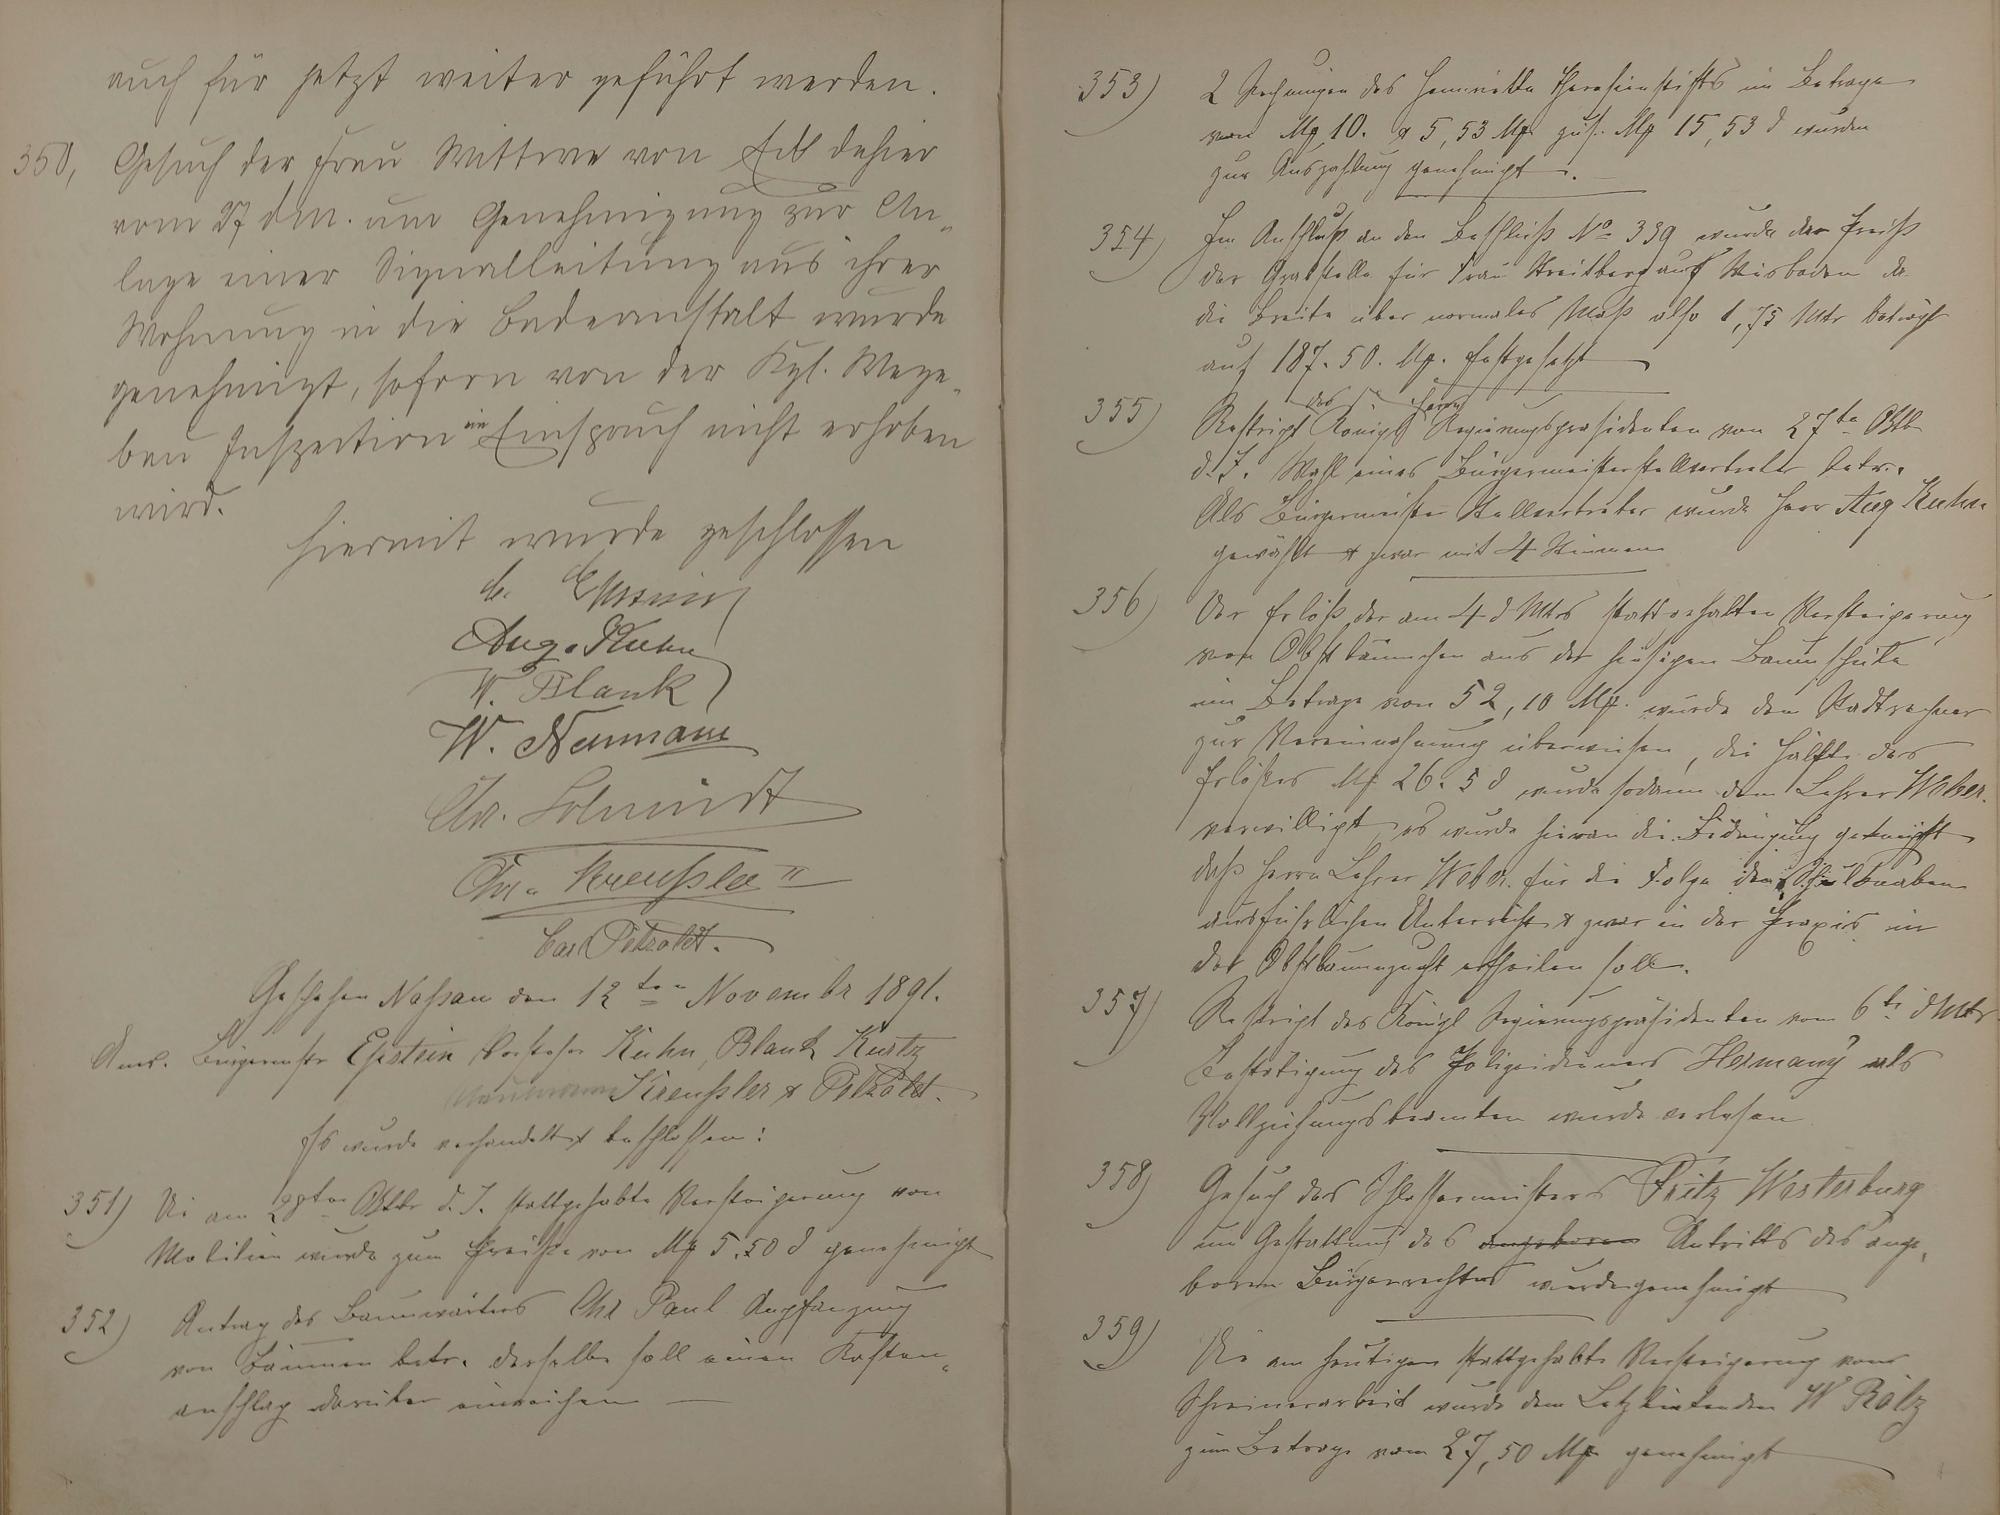 auch für jetzt weiter geführt werden.
350, Gesuch der Frau Wittwe von Eck dahier
vom 27 d.M. um Genehmigung zur An„
lage einer Signalleitung aus ihrer
Wohnung in die Badeanstalt wurde
genehmigt, sofern von der Kgl. Wege„
bau Inspection ein Einspruch nicht erhoben
wird.
hiermit wurde geschlossen
C. Epstein
Aug. Kuhn
W. Blank
W. Neumann
Chr. Schmidt
Chr. Kreußler II
Carl Petzoldt.
Geschehen Naßau den 12ten November 1891.
Anw. Bürgermstr Epstein Vorsteher Kuhn, Blank Kurtz
Neumann Kreußler & Petzoldt.
Es wurde verhandelt & beschloßen:
351) Die am 28ten Oktbr d. J. stattgehabte Versteigerung von
Mobilien wurde zum Preiße von Mk 5.50 d genehmigt
352) Antrag des Baumwärters Chr Paul Anpflanzung
von Bäumen betr. derselbe soll einen Kosten„
anschlag darüber einreichen
353) 2 Rechnungen des Henrietta Theresienstifts im Betrage
von Mk 10. & 5,53 Mk. zus. Mk 15,53 d wurden
zur Auszahlung genehmigt.
354) Im Anschluß an den Beschluß No 339 wurde der Preiß
der Grabstelle für Frau Streitberg aus Wisbaden da
die Breite über normales Maß also 1,75 Mtr beträgt
auf 187.50. Mk. festgesetzt
355) Reskript des Königl Herrn Regierungspräsidenten vom 27ten Oktb
d. J. Wahl eines Bürgermeisterstellvertreter betr.
Als Bürgermeister Stellvertreter wurde Herr Aug Kuhn
gewählt & zwar mit 4 Stimmen
356) Der Erlöß der am 4 d Mts stattgehalten Versteigerung
von Obstbäumchen aus der hiesigen Baumschule
im Betrage von 52,10 Mk. wurde dem Stadtrechner
zur Vereinnahmung überwiesen, die Hälfte des
Erlößes Mk 26.5 d wurde sodann dem Lehrer Weber
verwilligt, es wurde hieran die Bedingung geknüpft
daß Herrn Lehrer Weber für die Folge den Schulknaben
ausführlichen Unterricht & zwar in der Praxis in
der Obstbaumzucht ertheilen soll.
357) Reskript des Königl Regierungspräsidenten vom 6ten d Mts
Bestätigung des Polizeidieners Hermany als
Vollziehungsbeamten wurde verlesen
358) Gesuch des Schlossermeisters Fritz Westerburg
um Gestattung des angeboren Antritts des ange„
boren Bürgerrechtes wurde genehmigt
359) Die am heutigen stattgehabte Versteigerung von
Schreinerarbeit wurde dem Letzbietenden W Bälz
zum Betrage vom 27,50 Mk genehmigt